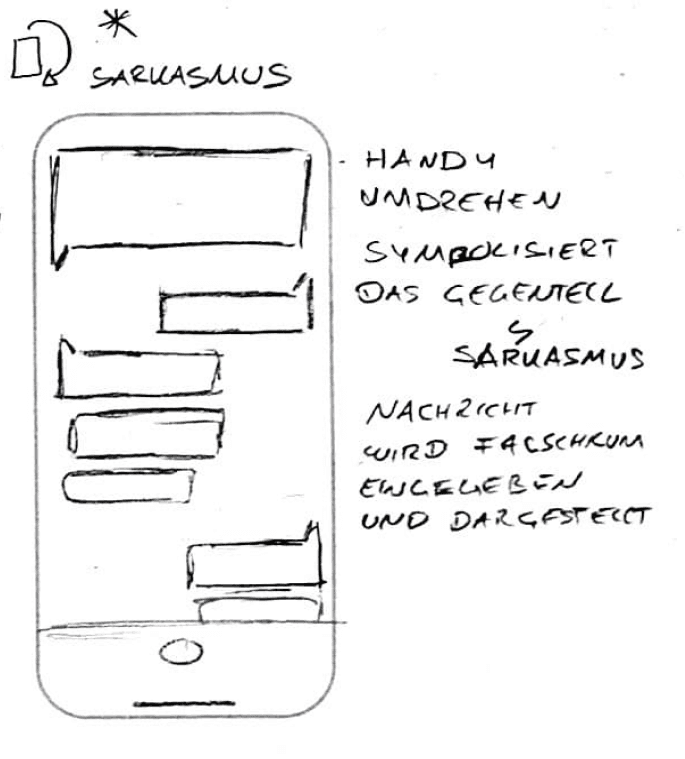 *
SARKASMUS
- HANDY
UMDREHEN
SYMBOLISIERT
DAS GEGENTEIL
↳
SARKASMUS
NACHRICHT
WIRD FALSCHRUM
EINGEGEBEN
UND DARGESTELLT